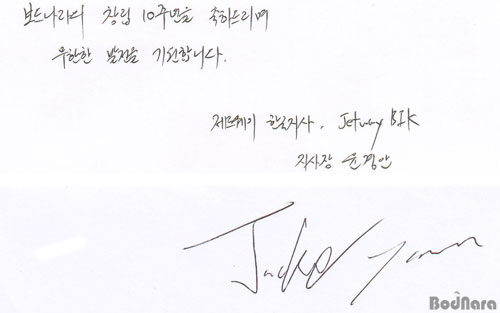 보드나라의 창립 10주년을 축하드리며
무한한 발전을 기원합니다.
제트웨이 한국지사. Jetway BIK
지사장 윤경안
BodNara